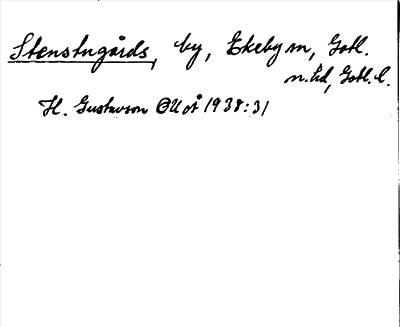 Stenstugårds, by, Ekeby sn, Gotl.
n. hd, Gotl. l.
H. Gustavson OUoÅ 1938:31